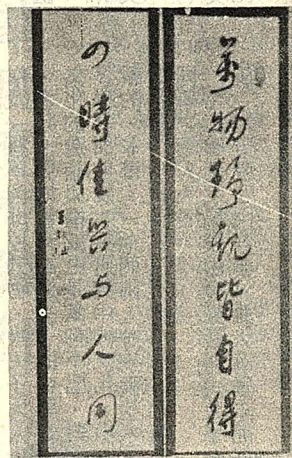 萬物靜觀皆自得
四時佳兴与人同